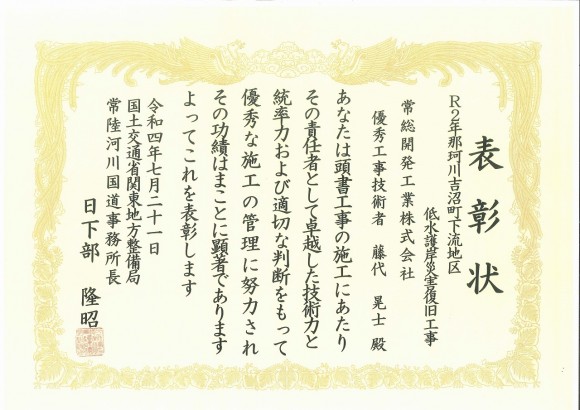 表彰状
R2年那珂川吉沼町下流地区
低水護岸災害復旧工事
常総開発工業株式会社
優秀工事技術者 藤代 晃士 殿
あなたは頭書工事の施工にあたり
その責任者として卓越した技術力と
統率力および適切な判断をもって
優秀な施工の管理に努力され
その功績はまことに顕著であります
よってこれを表彰します
令和四年七月二十一日
国土交通省関東地方整備局
常陸河川国道事務所長
日下部 隆昭